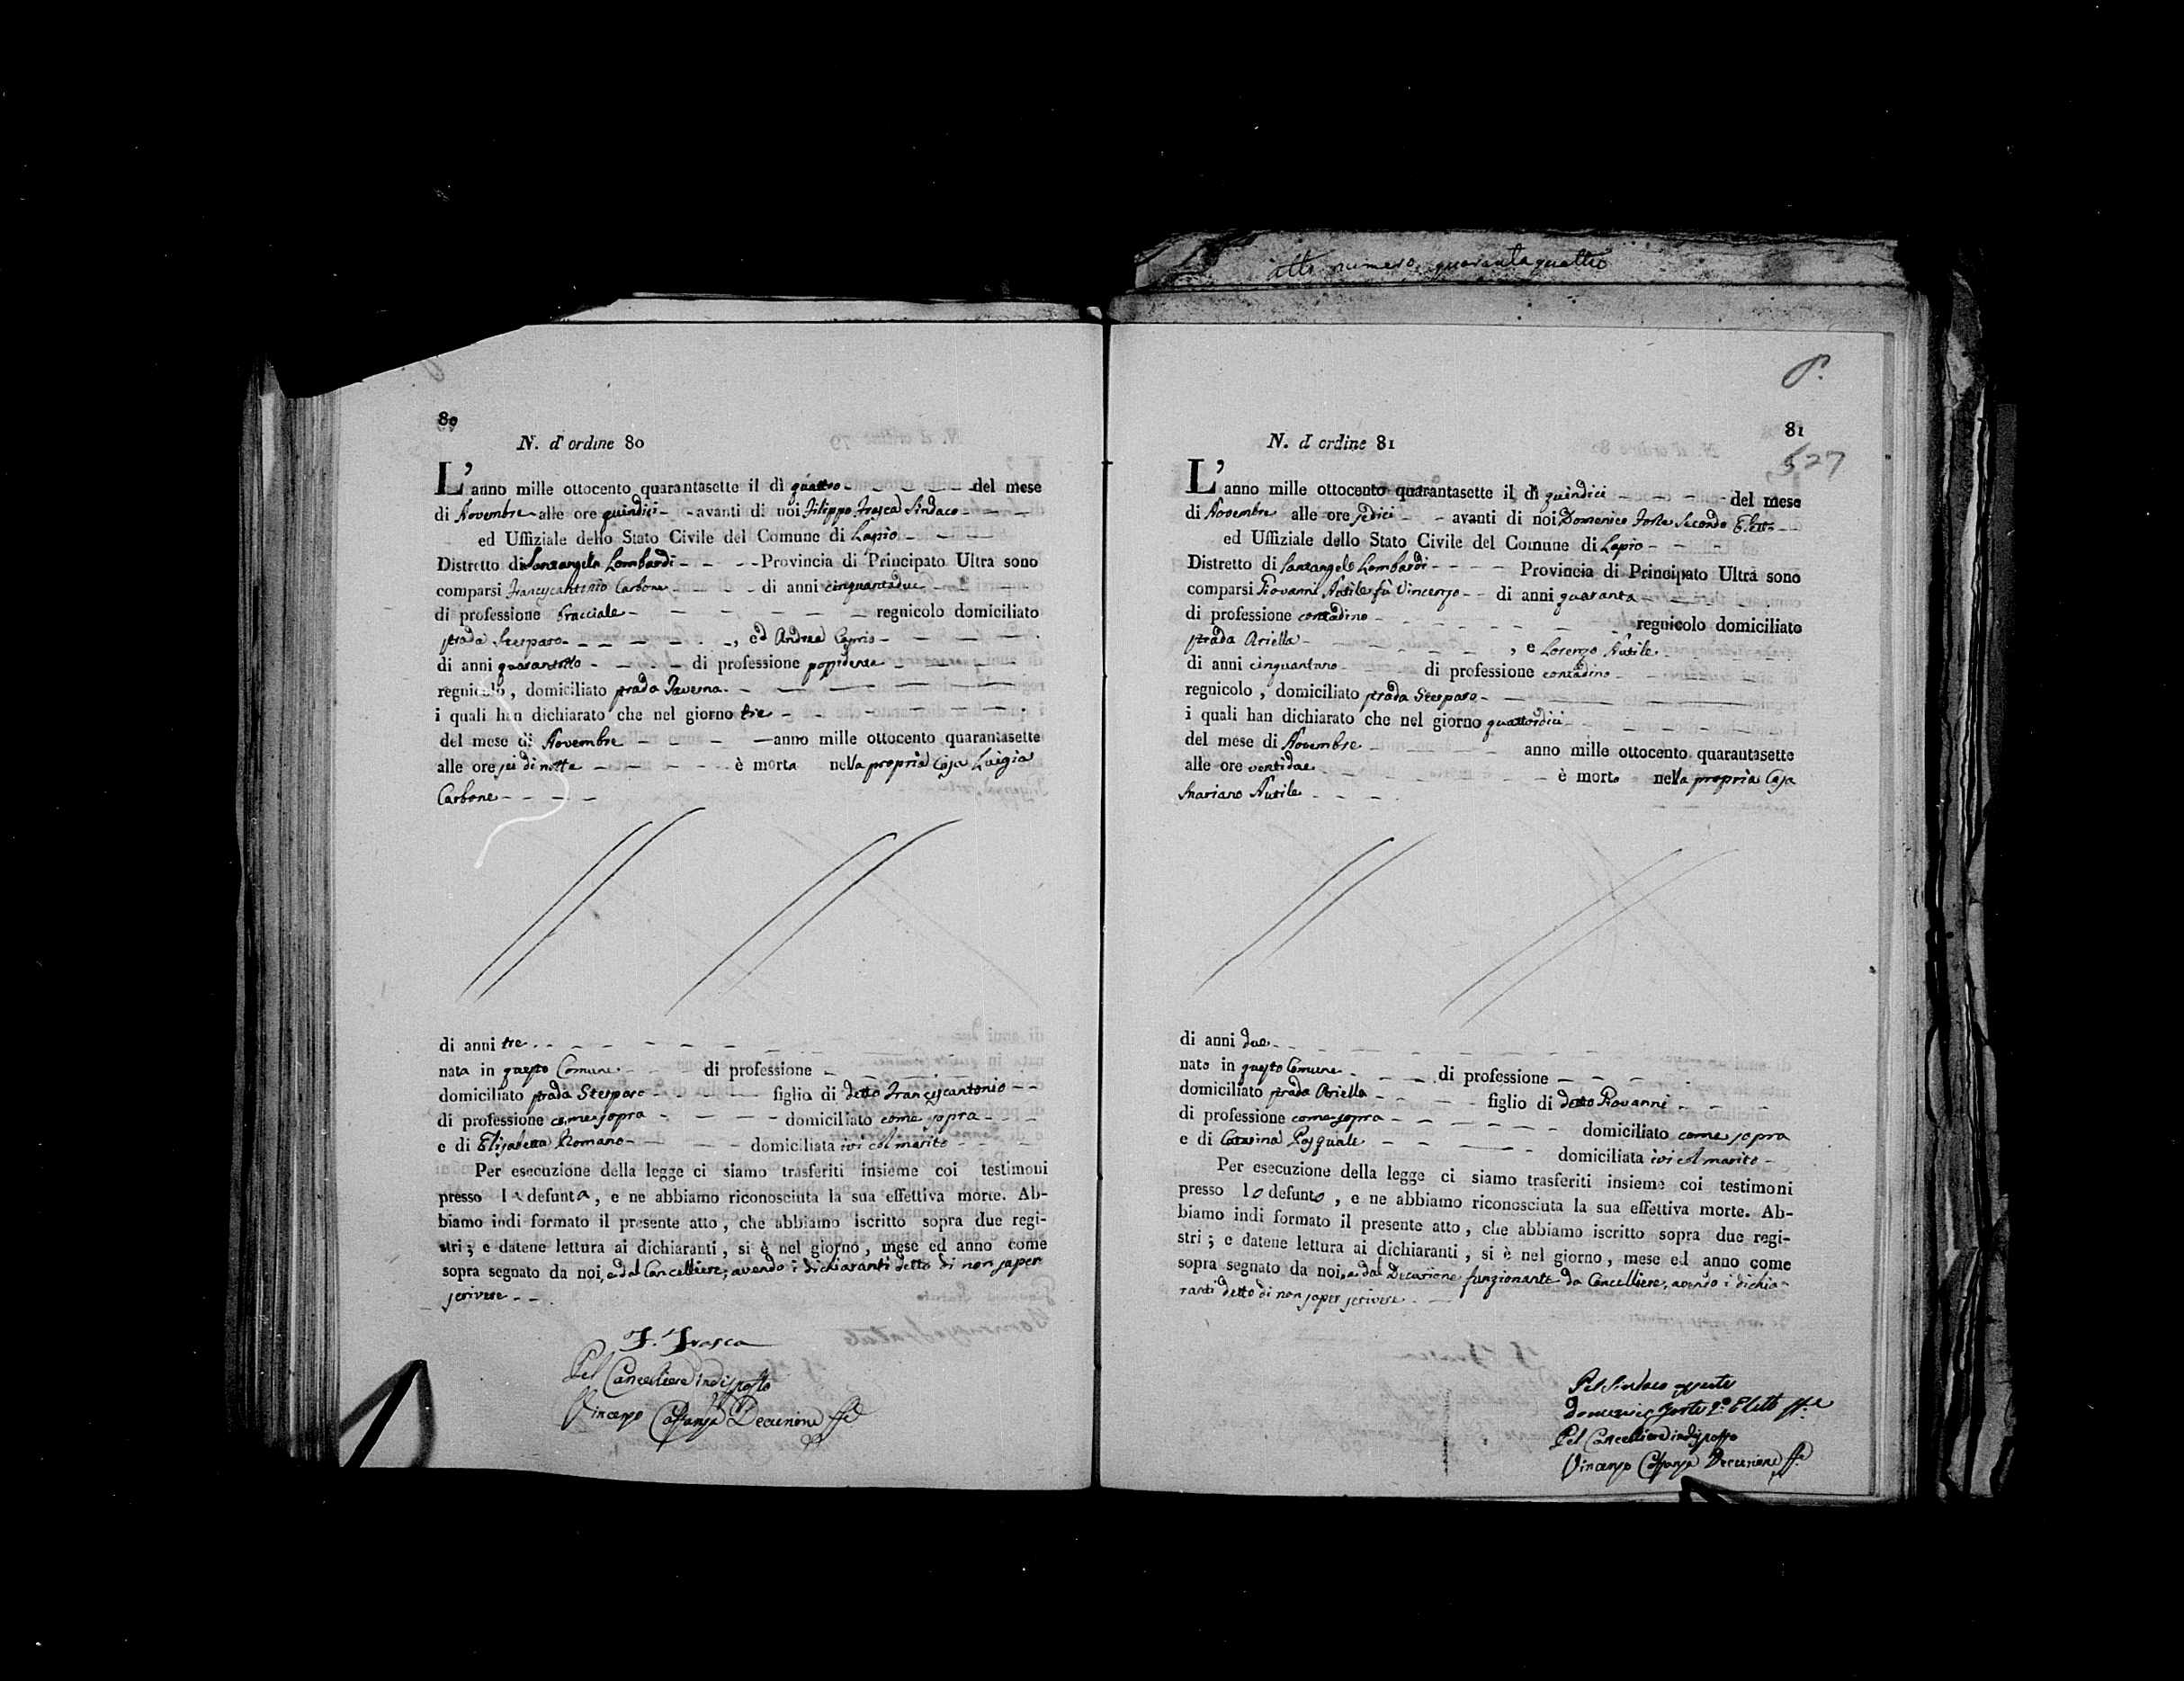 atto numero quarantaquattro
80
N. d' ordine 80
L' anno mille ottocento quarantasette il dì quattro - - - - - del mese
di Novembre - alle ore quindici - - avanti di noi Filippo Frasca Sindaco - - -
ed Uffiziale dello Stato Civile del Comune di Lapio - - -
Distretto di Santangelo Lombardi - - - - Provincia di Principato Ultra sono
comparsi Francescantonio Carbone - - - - di anni cinquantadue - - -
di professione Bracciale - - - - - - regnicolo domiciliato
strada Stesparo - - - - - - , ed Andrea Caprio - - - - -
di anni quarantotto - - - - di professione possidente - - - -
regnicolo , domiciliato strada Taverna. - - - - - -
i quali han dichiarato che nel giorno tre - - - - - - -
del mese di Novembre - - - - - anno mille ottocento quarantasette
alle ore sei di notte - - - - - è morta nella propria Casa Luigia
Carbone - - - -
di anni tre - - - - - - - -
nata in questo Comune - - di professione - - - - -
domiciliato strada Stesparo - - - - figlia di detto Francescantonio - -
di professione come sopra - - - - - domiciliato come sopra - -
e di Elisabetta Romano - - - - domiciliata ivi col marito - - -
Per esecuzione della legge ci siamo trasferiti insieme coi testimoni
presso la defunta , e ne abbiamo riconosciuta la sua effettiva morte. Ab-
biamo indi formato il presente atto , che abbiamo iscritto sopra due regi-
stri ; e datene lettura ai dichiaranti , si è nel giorno , mese ed anno come
sopra segnato da noi, e dal Cancelliere, avendo i dichiaranti detto di non saper
scrivere - - .
F. Frasca
Pel Cancelliere indisposto
Vincenzo Decurione ff.
P.
81
527
N. d' ordine 81
L' anno mille ottocento quarantasette il dì quindici - - - - del mese
di Novembre alle ore sedici - - avanti di noi Domenico Forte Secondo Eletto - -
ed Uffiziale dello Stato Civile del Comune di Lapio - - -
Distretto di Santangelo Lombardi - - - - Provincia di Principato Ultra sono
comparsi Giovanni Autile fù Vincenzo - - di anni quaranta - - - -
di professione contadino - - - - - - - regnicolo domiciliato
strada Ariella - - - - - - , e Lorenzo Autile - - - -
di anni cinquantuno - - - di professione contadino - - - -
regnicolo , domiciliato strada Stesparo - - - - - -
i quali han dichiarato che nel giorno quattordici - - - - -
del mese di Novembre - - - - - anno mille ottocento quarantasette
alle ore ventidue - - - - - - è morto nella propria Casa
Mariano Autile - - - .
di anni due - - - - - - - -
nato in questo Comune - - - - di professione - - - -
domiciliato strada Ariella - - - - - figlio di detto Giovanni - - -
di professione come sopra - - - - - - domiciliato come sopra
e di Catarina Pasquale - - - - domiciliata ivi col marito -
Per esecuzione della legge ci siamo trasferiti insieme coi testimoni
presso lo defunto , e ne abbiamo riconosciuta la sua effettiva morte. Ab-
biamo indi formato il presente atto , che abbiamo iscritto sopra due regi-
stri ; e datene lettura ai dichiaranti , si è nel giorno , mese ed anno come
sopra segnato da noi, e dal Decurione funzionante da Cancelliere, avendo i dichia-
ranti detto di non saper scrivere - -
Pel Sindaco assente
Domenico Forte 2.º Eletto ff.
Pel Cancelliere indisposto
Vincenzo Decurione ff.